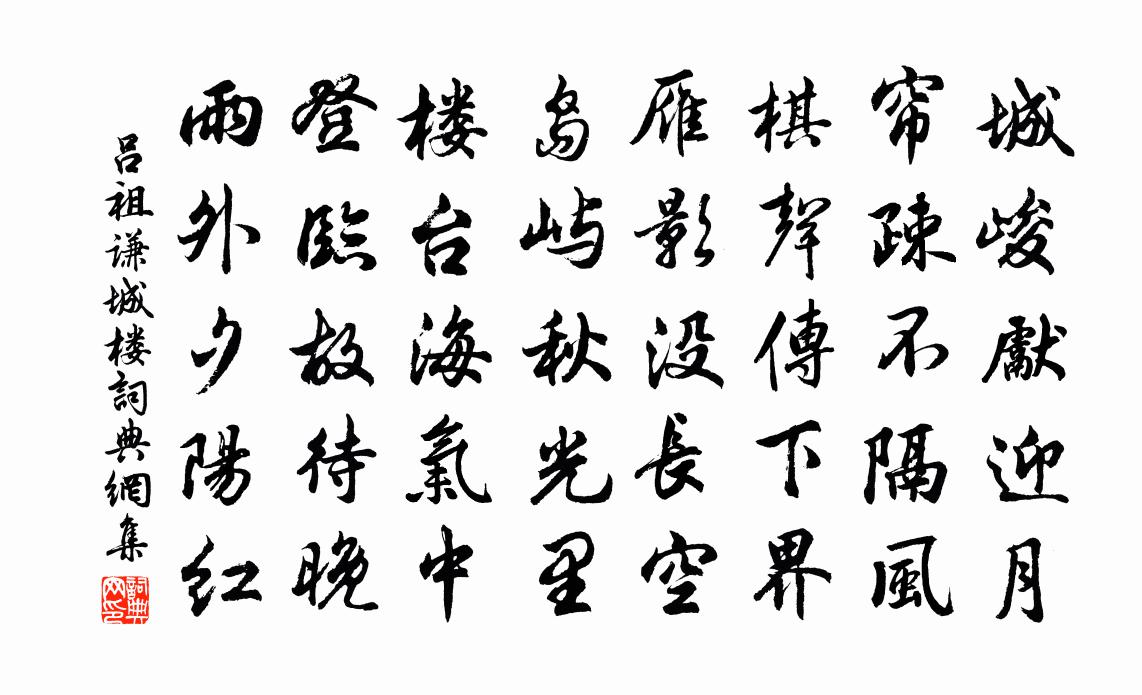 城峻獻迎月
帘疎不隔風
棋聲傳下界
雁影没長空
島屿秋光里
楼台海氣中
登臨故待晚
雨外夕陽红
吕祖谦城楼詞典網集
詞典网印